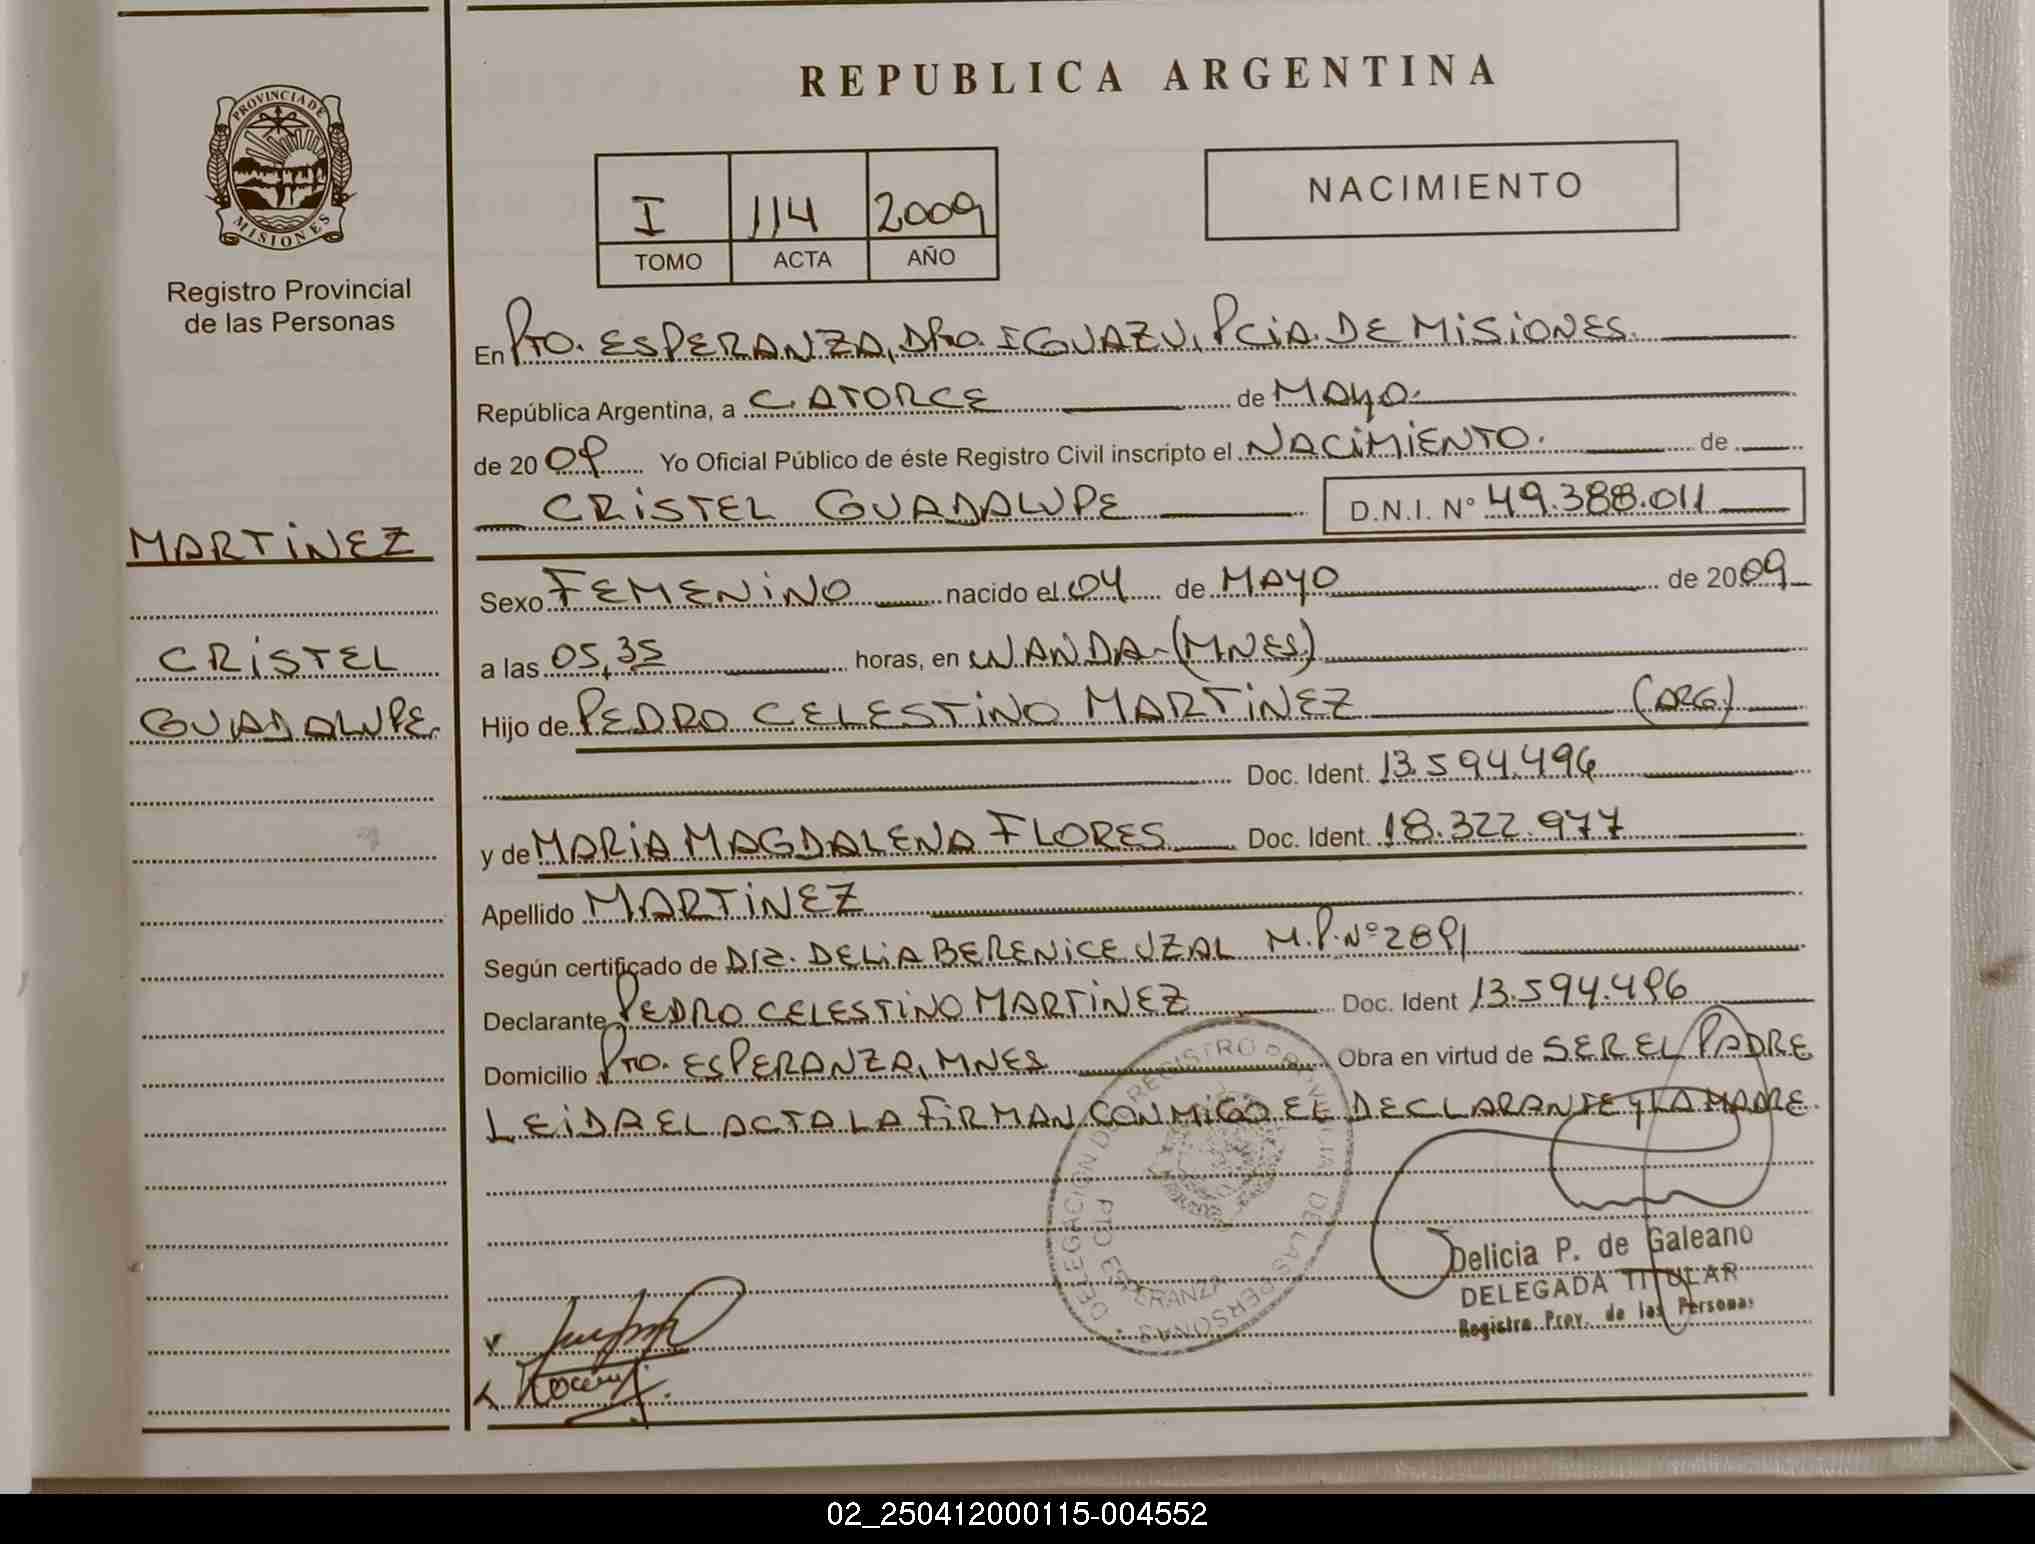 REPUBLICA ARGENTINA
PROVINCIA DE MISIONES
Registro Provincial
de las Personas
I 114 2009
TOMO ACTA AÑO
NACIMIENTO
MARTINEZ
CRISTEL
GUADALUPE
En PTO. ESPERANZA, DPTO. IGUAZU, PCIA. DE MISIONES.
República Argentina, a CATORCE de MAYO.
de 2009 Yo Oficial Público de éste Registro Civil inscripto el NACIMIENTO. de
CRISTEL GUADALUPE D.N.I. N° 49.388.011
Sexo FEMENINO nacido el 04 de MAYO de 2009
a las 05,35 horas, en WANDA-(MNES)
Hijo de PEDRO CELESTINO MARTINEZ (ARG)
Doc. Ident. 13.594.496
y de MARIA MAGDALENA FLORES Doc. Ident. 18.322.977
Apellido MARTINEZ
Según certificado de DRA. DELIA BERENICE UZAL M.P. N° 2891
Declarante PEDRO CELESTINO MARTINEZ Doc. Ident 13.594.496
Domicilio PTO. ESPERANZA, MNES Obra en virtud de SER EL PADRE
LEIDA EL ACTA LA FIRMAN CONMIGO EL DECLARANTE Y LA MADRE.
DELEGACION DEL REGISTRO PROVINCIAL DE LAS PERSONAS
PTO ESPERANZA
Delicia P. de Galeano
DELEGADA TITULAR
Registro Prov. de las Personas
02_250412000115-004552